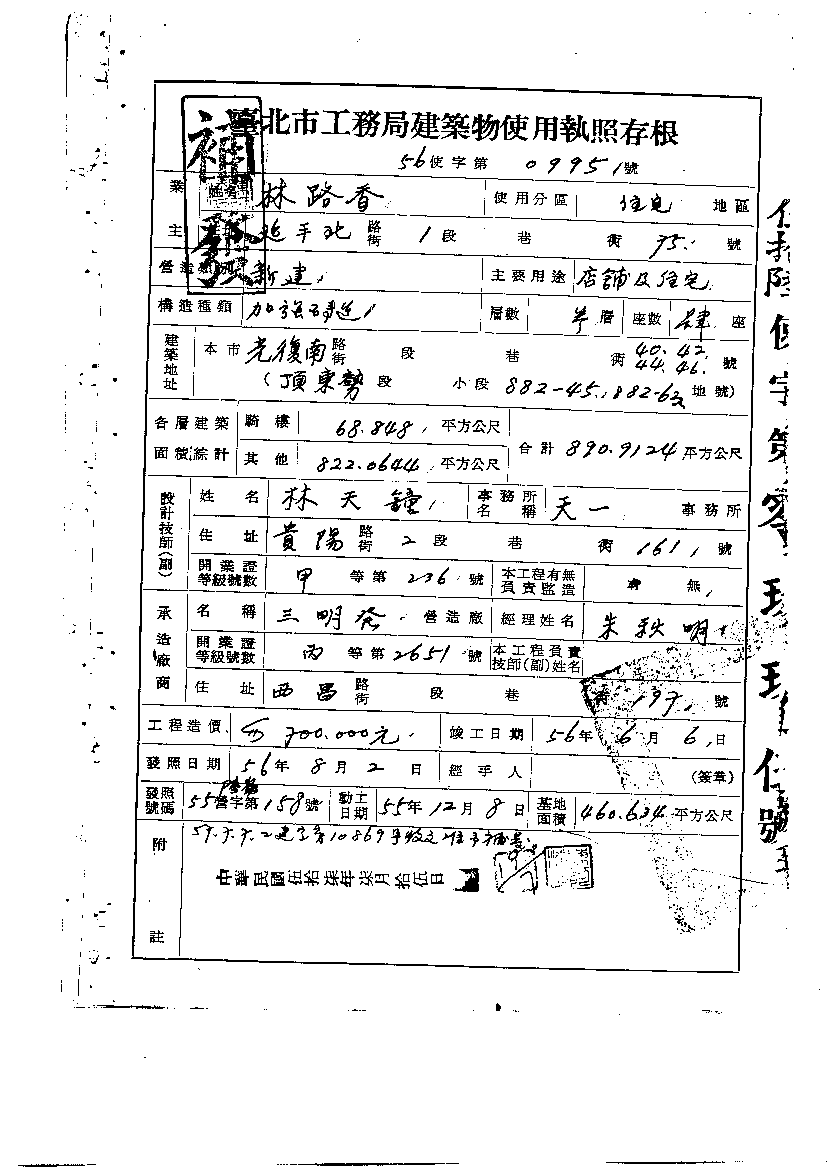 臺北市工務局建築物使用執照存根
補發
56使字第 09951號
業主 姓名 林路香 使用分區 住宅 地區
延平北 路街 1段 巷 衖 95. 號
營造類別 新建 主要用途 店舖及住宅
構造種類 加強磚造 層數 層 座數 肆 座
建築地址 本市 光復南 路街 段 巷 衖 40. 42. 44. 46. 號
(頂東勢 段 小段 882-45, 882-63 地號)
各層建築面積綜計 騎樓 68.848 平方公尺 合計 890.9124 平方公尺
其他 822.0644 平方公尺
設計技師(副) 姓名 林天鐘 事務所名稱 天一 事務所
住址 貴陽 路街 2段 巷 衖 161 號
開業證等級號數 甲 等第 236 號 本工程有無負責監造 有 無
承造廠商 名稱 三明發 營造廠 經理姓名 朱秋明
開業證等級號數 丙 等第 2651 號 本工程負責技師(副)姓名
住址 西昌 路街 段 巷 衖 197 號
工程造價 700.000元 竣工日期 56年 6月 6日
發照日期 56年 8月 2日 經手人 (簽章)
發照號碼 55營字第 158號 動工日期 55年 12月 8日 基地面積 460.634 平方公尺
附註
中華民國伍拾柒年柒月拾伍日
伍拾陸使字第零玖玖伍壹號